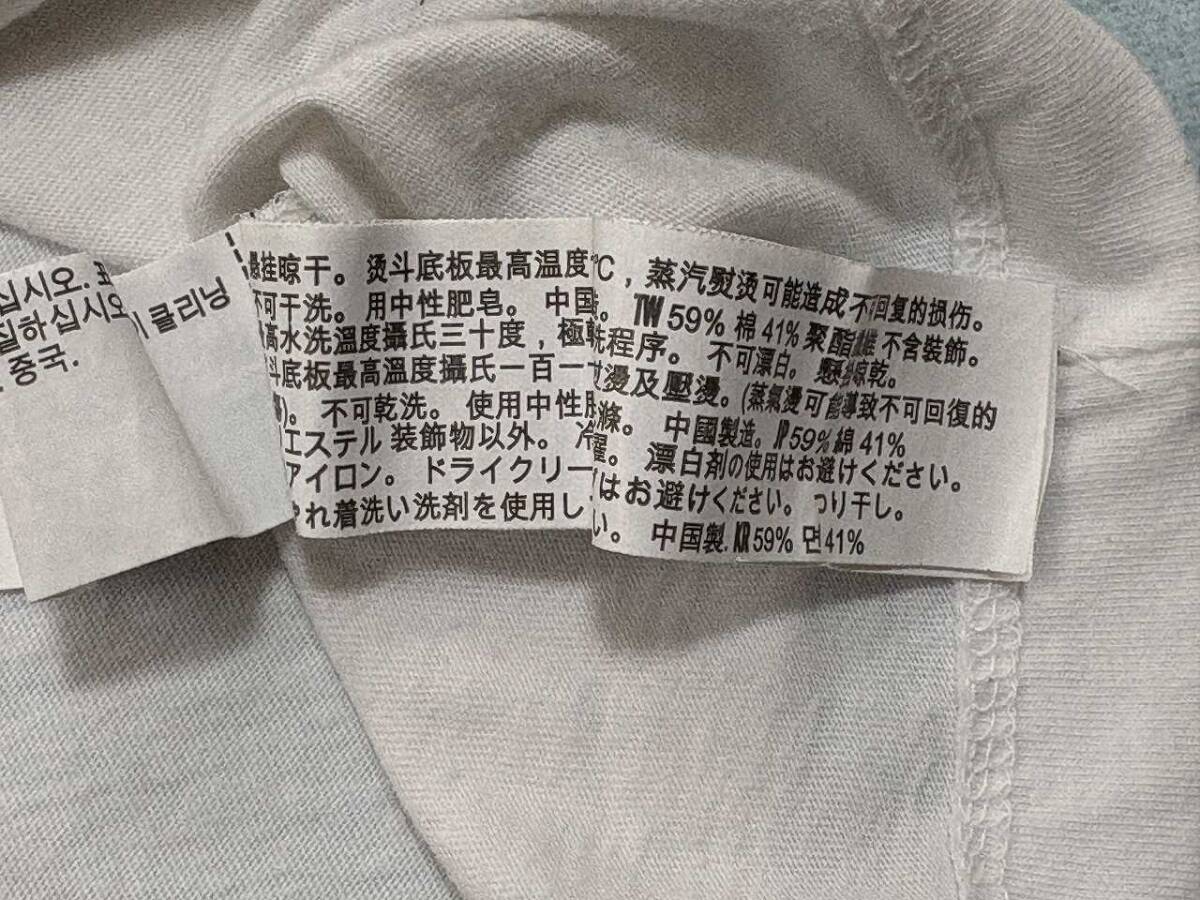 십시오.
하십시오
중국.
클리닝
挂晾干。 烫斗底板最高温度
不可干洗。 用中性肥皂。 中国
高水洗溫度攝氏三十度，極
斗底板最高溫度攝氏一百一
不可乾洗。 使用中性
エステル 装飾物以外。 冷
アイロン。 ドライクリー
れ着洗い洗剤を使用し
℃，蒸汽熨烫可能造成不可回复的损伤。
TW 59% 棉 41% 聚酯纖維 不含裝飾。
洗程序。 不可漂白。 懸掛晾乾。
燙及壓燙。(蒸氣燙可能導致不可回復的
滌。 中國製造。 JP 59% 綿 41%
濯。 漂白剤の使用はお避けください。
はお避けください。 つり干し。
い。 中国製. KR 59% 면 41%